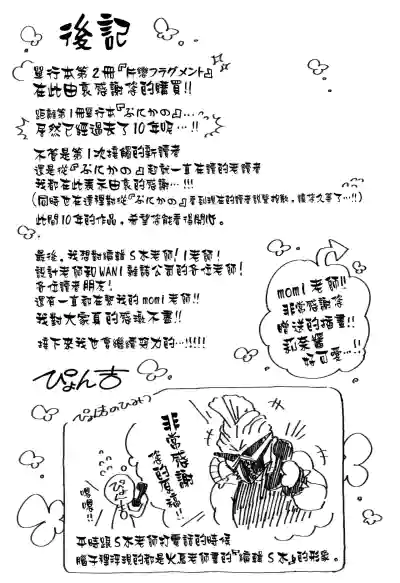 後記
單行本第2冊『片戀フラグメント』
在此由衷感謝您的購買!!
距離第1冊單行本『ぷにかの』…
居然已經過去了10年呢…!!
不管是第1次接觸的新讀者
還是從『ぷにかの』起就一直在讀的老讀者
我都在此表示由衷的感謝…!!!
(同時也在這裡對從『ぷにかの』看到現在的讀者說聲抱歉,讓您久等了…!!)
此間10年的作品,希望您能看得開心。
最後,我想對編輯S木老師!I老師!
設計老師和WANI雜誌公司的各位老師!
各位讀者朋友!
還有一直都在幫我的momi老師!!
我對大家真的感激不盡!!
接下來我也會繼續努力的…!!!!!
momi老師!!
非常感謝您
贈送的插畫!!
莉茉醬
好可愛…!!
ぴょん吉
ぴょん吉のひみつ
非常感謝
您的祝福!!
ぴょん吉
嘿嘿!!
平時跟S木老師打電話的時候
腦子裡浮現的都是火鳥老師畫的『編輯S木』的形象。